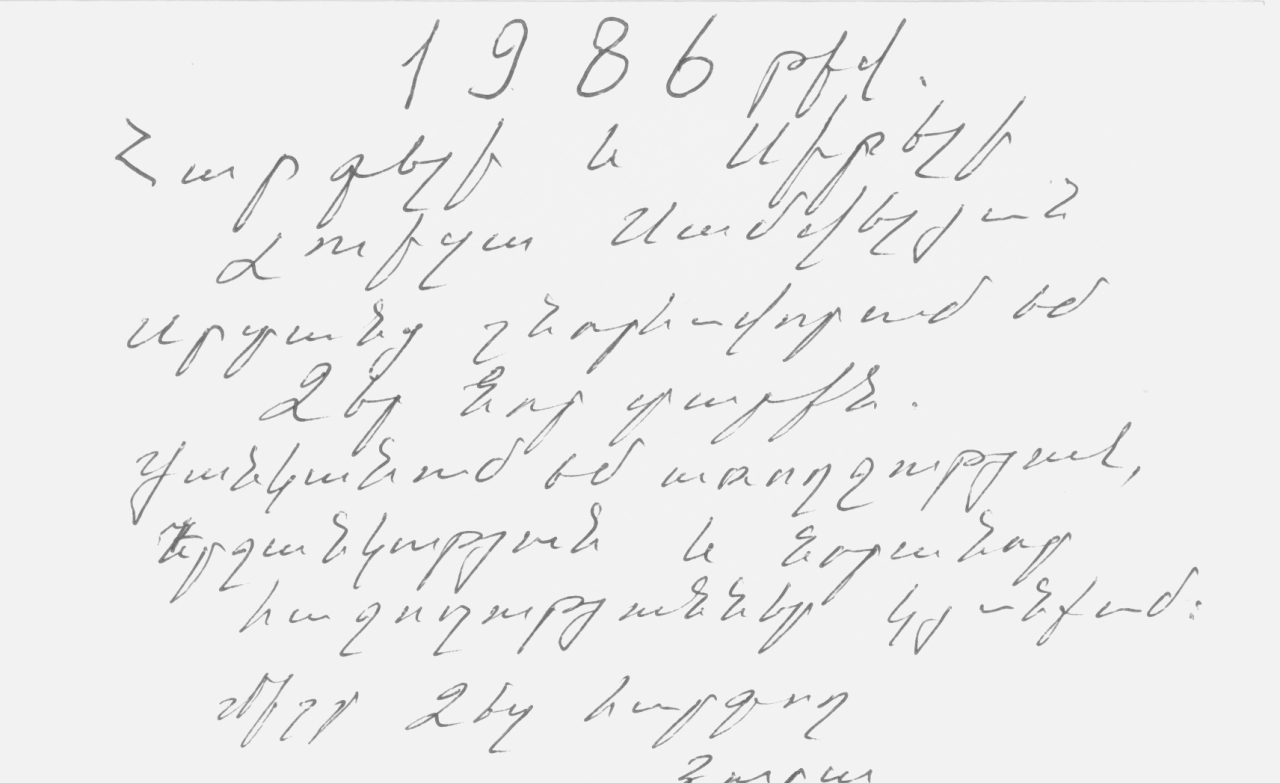 1986 թիվ.
Հարգելի և Սիրելի
Ժուլիզա Սամվելյան
Սրտանց շնորհավորում եմ
Ձեր նոր տարին.
Ցանկանում եմ առողջություն,
Երջանկություն և նորանոր
հաջողություններ կյանքում:
Միշտ Ձեզ հարգող